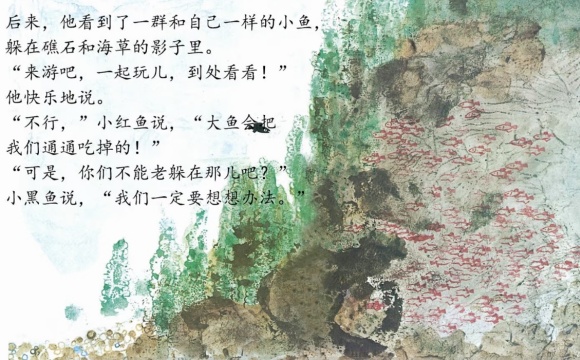 后来，他看到了一群和自己一样的小鱼，
躲在礁石和海草的影子里。
“来游吧，一起玩儿，到处看看！”
他快乐地说。
“不行，”小红鱼说，“大鱼会把
我们通通吃掉的！”
“可是，你们不能老躲在那儿吧？”
小黑鱼说，“我们一定要想想办法。”